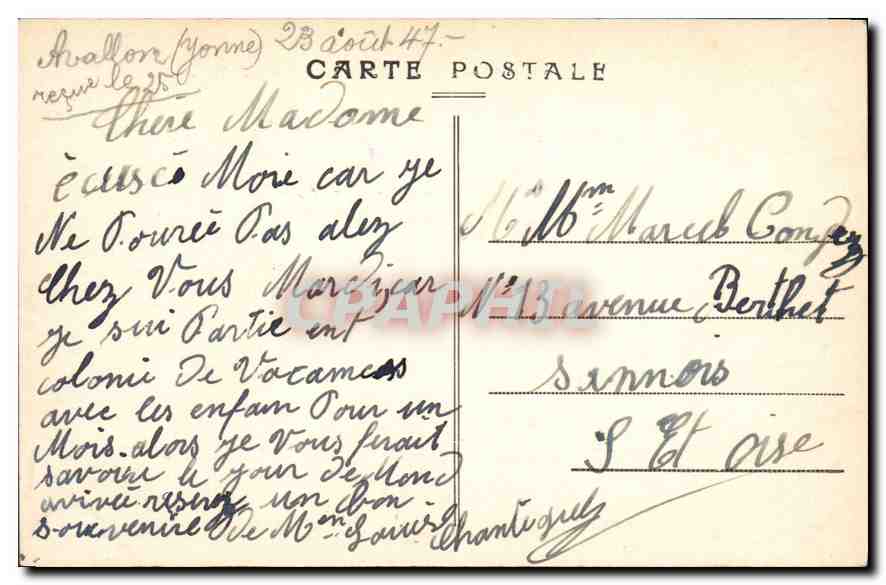 Avallon (Yonne) 23 août 47.-
reçue le 25
CARTE POSTALE
Chère Madame
écuscé Moie car je
Ne Pourée Pas alez
Chez Vous Mardi, car
je sui Partie ent
colonie de Vacances
avec les enfan Pour un
Mois. alors je Vous ferait
savoire le jour de Mond
arivée reserez un bon
souvenire de Men Louise
Chantequelz
M Mme Marcel Condez
N° 13 avenue Berthet
Sannois
S Et Oise
CPAPHIL